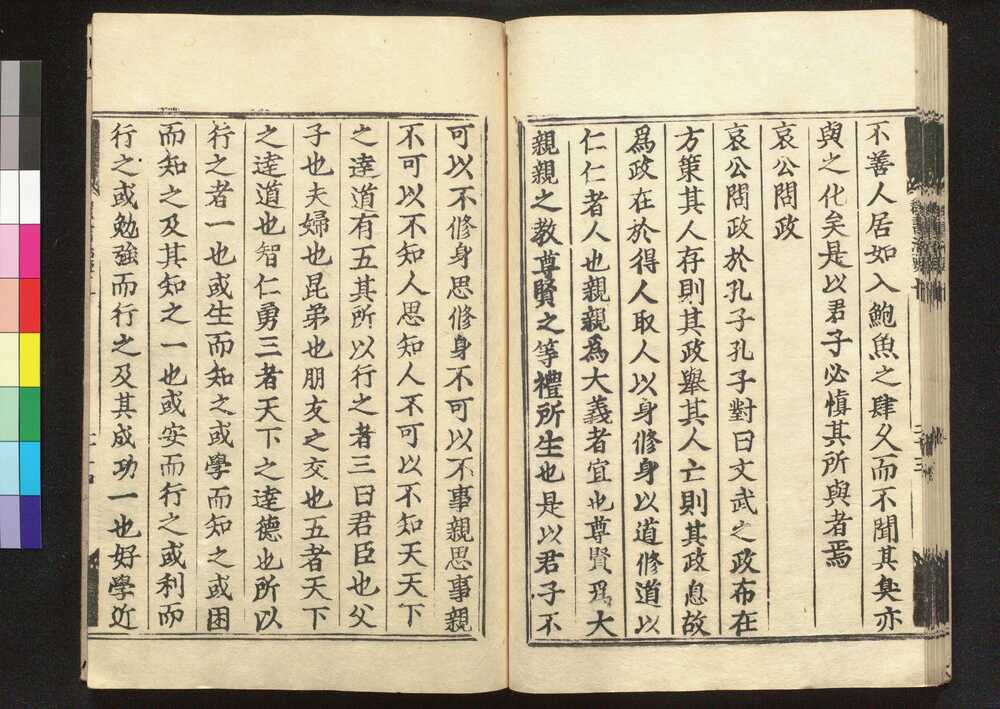 不善人居如入鮑魚之肆久而不聞其臭亦
與之化矣是以君子必慎其所與者焉
哀公問政
哀公問政於孔子孔子對曰文武之政布在
方策其人存則其政舉其人亡則其政息故
爲政在於得人取人以身修身以道修道以
仁仁者人也親親爲大義者宜也尊賢爲大
親親之教尊賢之等禮所生也是以君子不
可以不修身思修身不可以不事親思事親
不可以不知人思知人不可以不知天天下
之達道有五其所以行之者三曰君臣也父
子也夫婦也昆弟也朋友之交也五者天下
之達道也智仁勇三者天下之達德也所以
行之者一也或生而知之或學而知之或困
而知之及其知之一也或安而行之或利而
行之或勉強而行之及其成功一也好學近